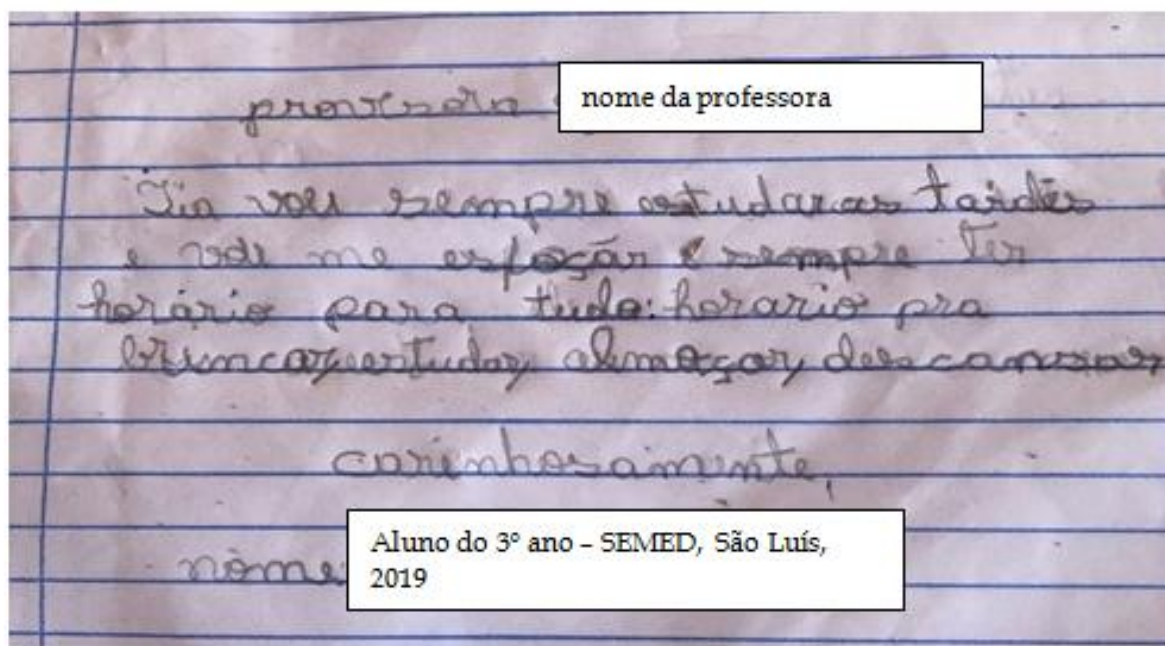 provesora nome da professora
Tia vou sempre estudar as tardes
e vou me esfoçar e sempre ter
horário para tudo: horario pra
brincar, estudar, almoçar, descansar,
carinhosamente,
nome Aluno do 3º ano – SEMED, São Luís,
2019